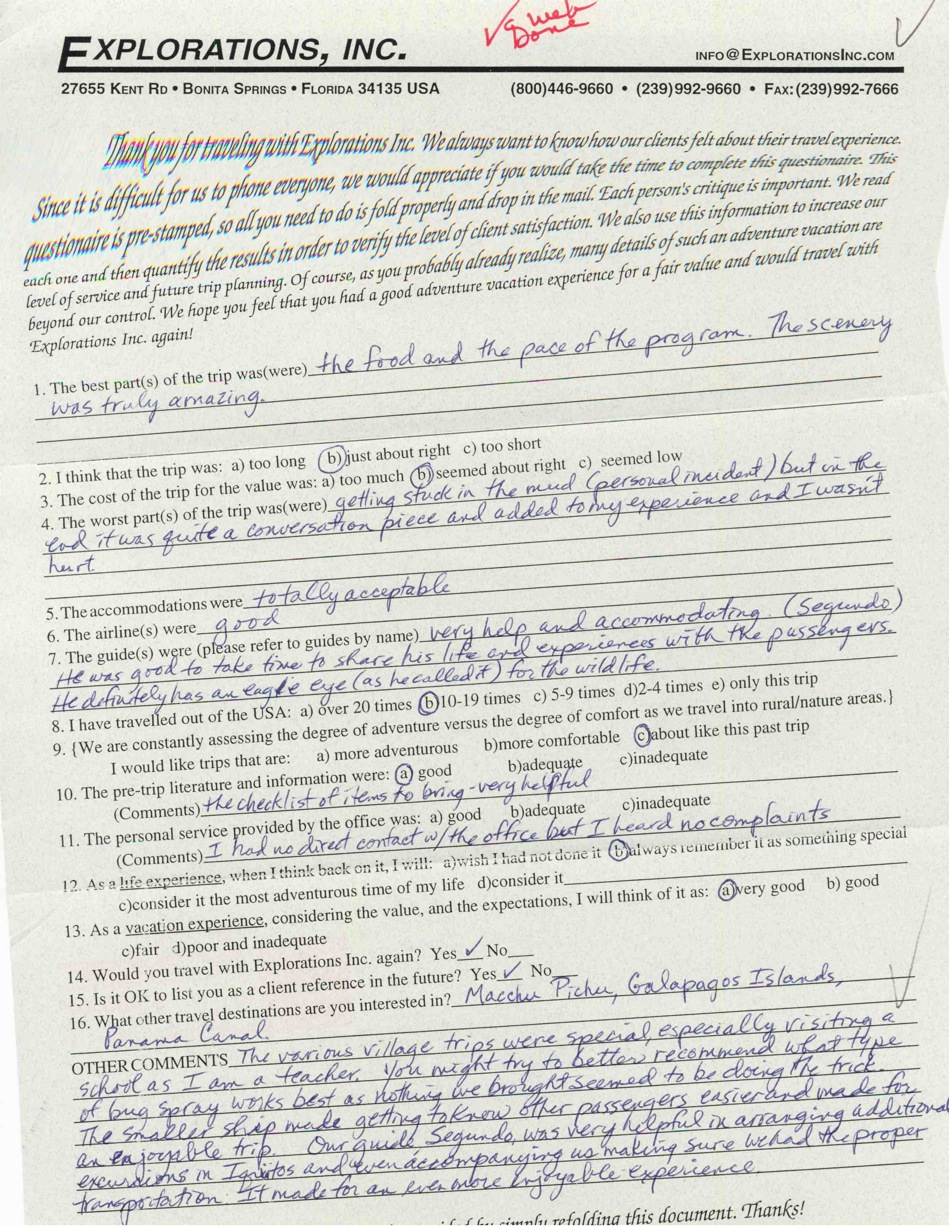 √ web
Done
EXPLORATIONS, INC.
INFO@EXPLORATIONSINC.COM
27655 KENT RD • BONITA SPRINGS • FLORIDA 34135 USA (800)446-9660 • (239)992-9660 • FAX:(239)992-7666
Thank you for traveling with Explorations Inc. We always want to know how our clients felt about their travel experience.
Since it is difficult for us to phone everyone, we would appreciate if you would take the time to complete this questionaire. This
questionaire is pre-stamped, so all you need to do is fold properly and drop in the mail. Each person's critique is important. We read
each one and then quantify the results in order to verify the level of client satisfaction. We also use this information to increase our
level of service and future trip planning. Of course, as you probably already realize, many details of such an adventure vacation are
beyond our control. We hope you feel that you had a good adventure vacation experience for a fair value and would travel with
Explorations Inc. again!
1. The best part(s) of the trip was(were) the food and the pace of the program. The scenery
was truly amazing.
2. I think that the trip was: a) too long b) just about right c) too short
3. The cost of the trip for the value was: a) too much b) seemed about right c) seemed low
4. The worst part(s) of the trip was(were) getting stuck in the mud (personal incident) but in the
end it was quite a conversation piece and added to my experience and I wasn't
hurt.
5. The accommodations were totally acceptable
6. The airline(s) were good
7. The guide(s) were (please refer to guides by name) very help and accommodating. (Segundo)
He was good to take time to share his life and experiences with the passengers.
He definitely has an eagle eye (as he called it) for the wildlife.
8. I have travelled out of the USA: a) over 20 times b) 10-19 times c) 5-9 times d)2-4 times e) only this trip
9. {We are constantly assessing the degree of adventure versus the degree of comfort as we travel into rural/nature areas.}
I would like trips that are: a) more adventurous b)more comfortable c)about like this past trip
10. The pre-trip literature and information were: a) good b)adequate c)inadequate
(Comments) the checklist of items to bring - very helpful
11. The personal service provided by the office was: a) good b)adequate c)inadequate
(Comments) I had no direct contact w/the office but I heard no complaints
12. As a life experience, when I think back on it, I will: a)wish I had not done it b)always remember it as something special
c)consider it the most adventurous time of my life d)consider it
13. As a vacation experience, considering the value, and the expectations, I will think of it as: a)very good b) good
c)fair d)poor and inadequate
14. Would you travel with Explorations Inc. again? Yes ✓ No
15. Is it OK to list you as a client reference in the future? Yes ✓ No
16. What other travel destinations are you interested in? Macchu Pichu, Galapagos Islands,
Panama Canal.
OTHER COMMENTS The various village trips were special, especially visiting a
school as I am a teacher. You might try to better recommend what type
of bug spray works best as nothing we brought seemed to be doing the trick.
The smaller ship made getting to know other passengers easier and made for
an enjoyable trip. Our guide Segundo, was very helpful in arranging additional
excursions in Iquitos and even accompanying us making sure we had the proper
transportation. It made for an even more enjoyable experience.
by simply refolding this document. Thanks!